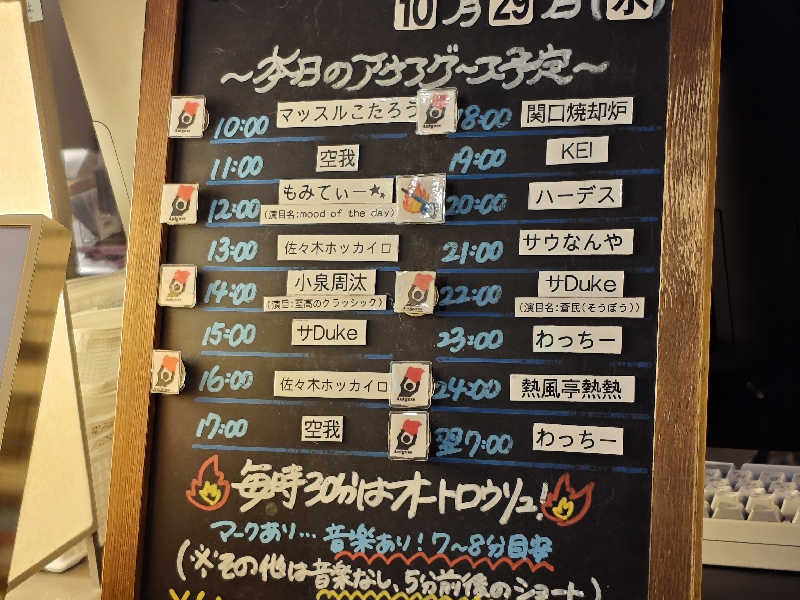 10月29日(水)
～本日のアウフグース予定～
10:00 マッスルこたろう
11:00 空我
12:00 もみてぃー★
(演目名:mood of the day)
13:00 佐々木ホッカイロ
14:00 小泉周汰
(演目:至高のクラッシック)
15:00 サDuke
16:00 佐々木ホッカイロ
17:00 空我
18:00 関口焼却炉
19:00 KEI
20:00 ハーデス
21:00 サウなんや
22:00 サDuke
(演目名:蒼氓(そうぼう))
23:00 わっちー
24:00 熱風亭熱熱
翌7:00 わっちー
毎時30分はオートロウリュ!
マークあり…音楽あり!7～8分目安
(※その他は音楽なし、5分前後のショート)